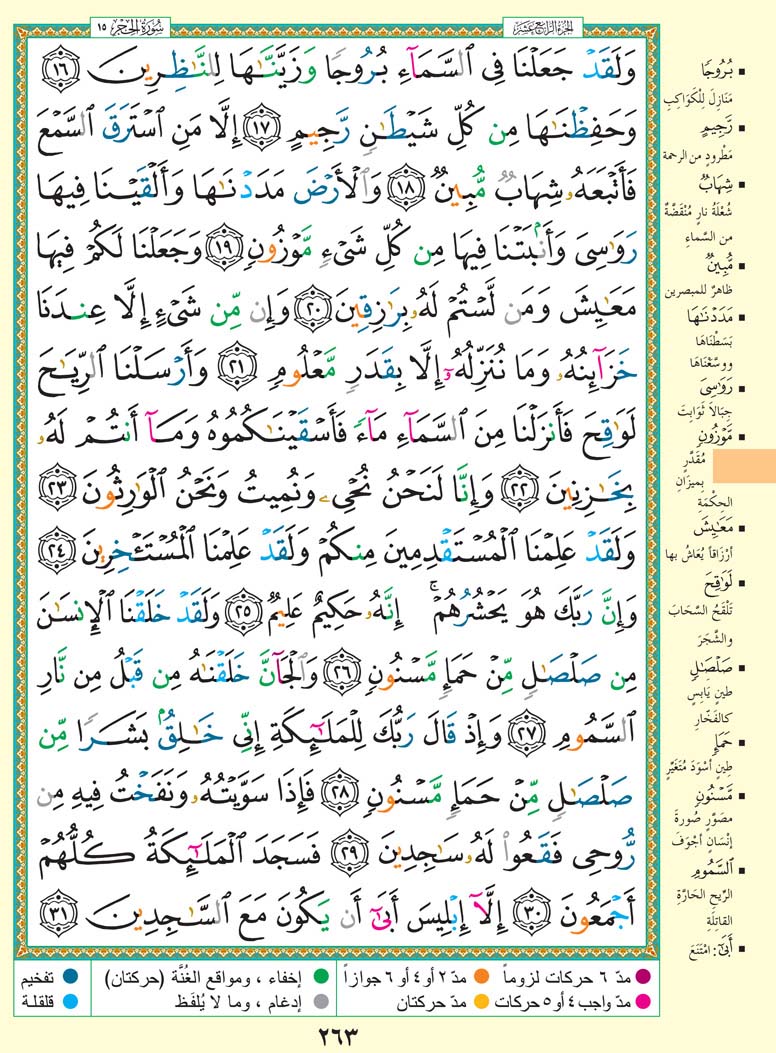 سُورَةُ الحِجْر ١٥
الجُزءُ الرَّابِعَ عَشَرَ
وَلَقَدْ جَعَلْنَا فِى ٱلسَّمَآءِ بُرُوجًا وَزَيَّنَّٰهَا لِلنَّٰظِرِينَ ١٦
وَحَفِظْنَٰهَا مِن كُلِّ شَيْطَٰنٍ رَّجِيمٍ ١٧ إِلَّا مَنِ ٱسْتَرَقَ ٱلسَّمْعَ
فَأَتْبَعَهُۥ شِهَابٌ مُّبِينٌ ١٨ وَٱلْأَرْضَ مَدَدْنَٰهَا وَأَلْقَيْنَا فِيهَا
رَوَٰسِىَ وَأَنۢبَتْنَا فِيهَا مِن كُلِّ شَىْءٍ مَّوْزُونٍ ١٩ وَجَعَلْنَا لَكُمْ فِيهَا
مَعَٰيِشَ وَمَن لَّسْتُمْ لَهُۥ بِرَٰزِقِينَ ٢٠ وَإِن مِّن شَىْءٍ إِلَّا عِندَنَا
خَزَآئِنُهُۥ وَمَا نُنَزِّلُهُۥٓ إِلَّا بِقَدَرٍ مَّعْلُومٍ ٢١ وَأَرْسَلْنَا ٱلرِّيَٰحَ
لَوَٰقِحَ فَأَنزَلْنَا مِنَ ٱلسَّمَآءِ مَآءً فَأَسْقَيْنَٰكُمُوهُ وَمَآ أَنتُمْ لَهُۥ
بِخَٰزِنِينَ ٢٢ وَإِنَّا لَنَحْنُ نُحْىِۦ وَنُمِيتُ وَنَحْنُ ٱلْوَٰرِثُونَ ٢٣
وَلَقَدْ عَلِمْنَا ٱلْمُسْتَقْدِمِينَ مِنكُمْ وَلَقَدْ عَلِمْنَا ٱلْمُسْتَـْٔخِرِينَ ٢٤
وَإِنَّ رَبَّكَ هُوَ يَحْشُرُهُمْ ۚ إِنَّهُۥ حَكِيمٌ عَلِيمٌ ٢٥ وَلَقَدْ خَلَقْنَا ٱلْإِنسَٰنَ
مِن صَلْصَٰلٍ مِّنْ حَمَإٍ مَّسْنُونٍ ٢٦ وَٱلْجَآنَّ خَلَقْنَٰهُ مِن قَبْلُ مِن نَّارِ
ٱلسَّمُومِ ٢٧ وَإِذْ قَالَ رَبُّكَ لِلْمَلَٰٓئِكَةِ إِنِّى خَٰلِقٌۢ بَشَرًا مِّن
صَلْصَٰلٍ مِّنْ حَمَإٍ مَّسْنُونٍ ٢٨ فَإِذَا سَوَّيْتُهُۥ وَنَفَخْتُ فِيهِ مِن
رُّوحِى فَقَعُوا۟ لَهُۥ سَٰجِدِينَ ٢٩ فَسَجَدَ ٱلْمَلَٰٓئِكَةُ كُلُّهُمْ
أَجْمَعُونَ ٣٠ إِلَّآ إِبْلِيسَ أَبَىٰٓ أَن يَكُونَ مَعَ ٱلسَّٰجِدِينَ ٣١
▪ بُرُوجًا
مَنَازِلَ لِلْكَوَاكِبِ
▪ رَّجِيمٍ
مَطْرودٍ من الرحمة
▪ شِهَابٌ
شُعْلَةُ نارٍ مُنْقَضَّةٌ
من السَّماءِ
▪ مُّبِينٌ
ظاهرٌ للمبصرين
▪ مَدَدْنَٰهَا
بَسَطْنَاهَا
ووسَّعْنَاهَا
▪ رَوَٰسِىَ
جِبَالاً ثَوَابِتَ
▪ مَّوْزُونٍ
مُقَدَّرٍ
بميزَانِ
الحِكْمَةِ
▪ مَعَٰيِشَ
أرْزَاقاً يُعَاشُ بها
▪ لَوَٰقِحَ
تَلْقَحُ السَّحَابَ
والشَّجَرَ
▪ صَلْصَٰلٍ
طينٍ يَابِسٍ
كالفَخَّارِ
▪ حَمَإٍ
طِينٍ أَسْوَدَ مُتَغَيِّرٍ
▪ مَّسْنُونٍ
مصَوَّرٍ صُورةَ
إنْسَانٍ أجْوَفَ
▪ ٱلسَّمُومِ
الرِّيحِ الحَارَّةِ
القاتِلَةِ
▪ أَبَىٰٓ: امْتَنَعَ
مدّ ٦ حركات لزوماً
مدّ ٢ أو ٤ أو ٦ جوازاً
إخفاء ، ومواقع الغُنَّة (حركتان)
تفخيم
مدّ واجب ٤ أو ٥ حركات
مدّ حركتان
إدغام ، وما لا يُلفَظ
قلقلة
٢٦٣